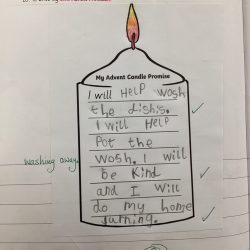 My Advent Candle Promise
I will HELP wosh
the dishis.
I will HELP
Pot the
washing away.
wosh. I will
be Kind
and I will
do my home
surning.